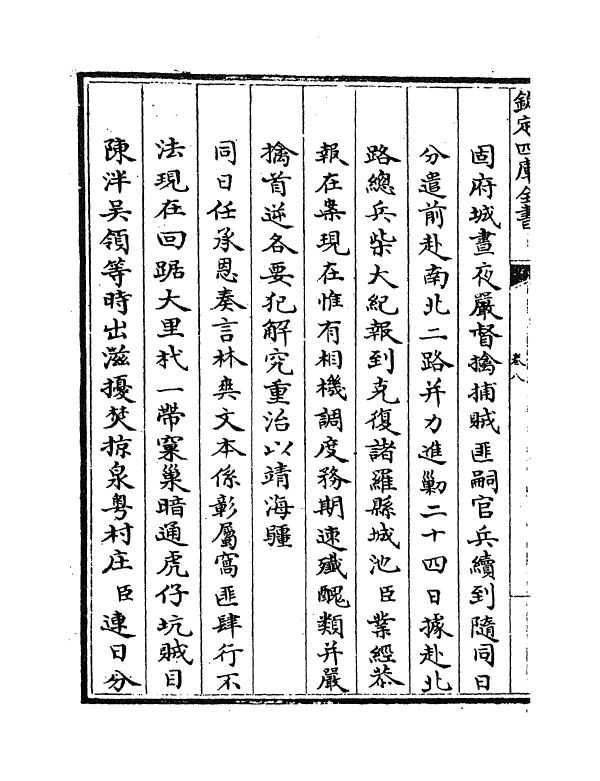 欽定四庫全書
卷八
固府城晝夜嚴督擒捕賊匪嗣官兵續到隨同日
分遣前赴南北二路并力進勦二十四日據赴北
路總兵柴大紀報到克復諸羅縣城池臣業經恭
報在案現在惟有相機調度務期速殲醜類并嚴
擒首逆各要犯解究重治以靖海疆
同日任承恩奏言林爽文本係彰屬窩匪肆行不
法現在回踞大里杙一帶窠巢暗通虎仔坑賊目
陳泮吳領等時出滋擾焚掠泉粤村庄臣連日分